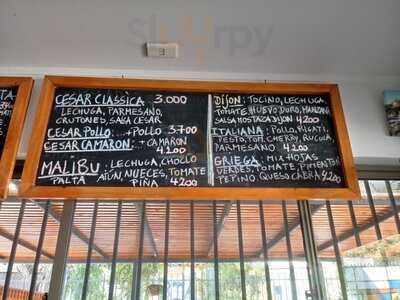 Slurrpy
CESAR CLASSICA 3.000
LECHUGA, PARMESANO,
CRUTONES, SALSA CESAR
CESAR POLLO ...+POLLO 3700
CESAR CAMARON ..+CAMARON
4200
MALIBU : LECHUGA, CHOCLO
PALTA ATUN, NUECES, TOMATE
PIÑA 4.200
DIJON: TOCINO, LECHUGA,
TOMATE, HUEVO DURO, MANZANA
SALSA MOSTAZA DIJON 4200
ITALIANA: POLLO, RIGATI,
PESTO, TOM. CHERRY, RUCULA
PARMESANO 4200
GRIEGA: MIX HOJAS
VERDES, TOMATE, PIMENTON
PEPINO QUESO CABRA 4200